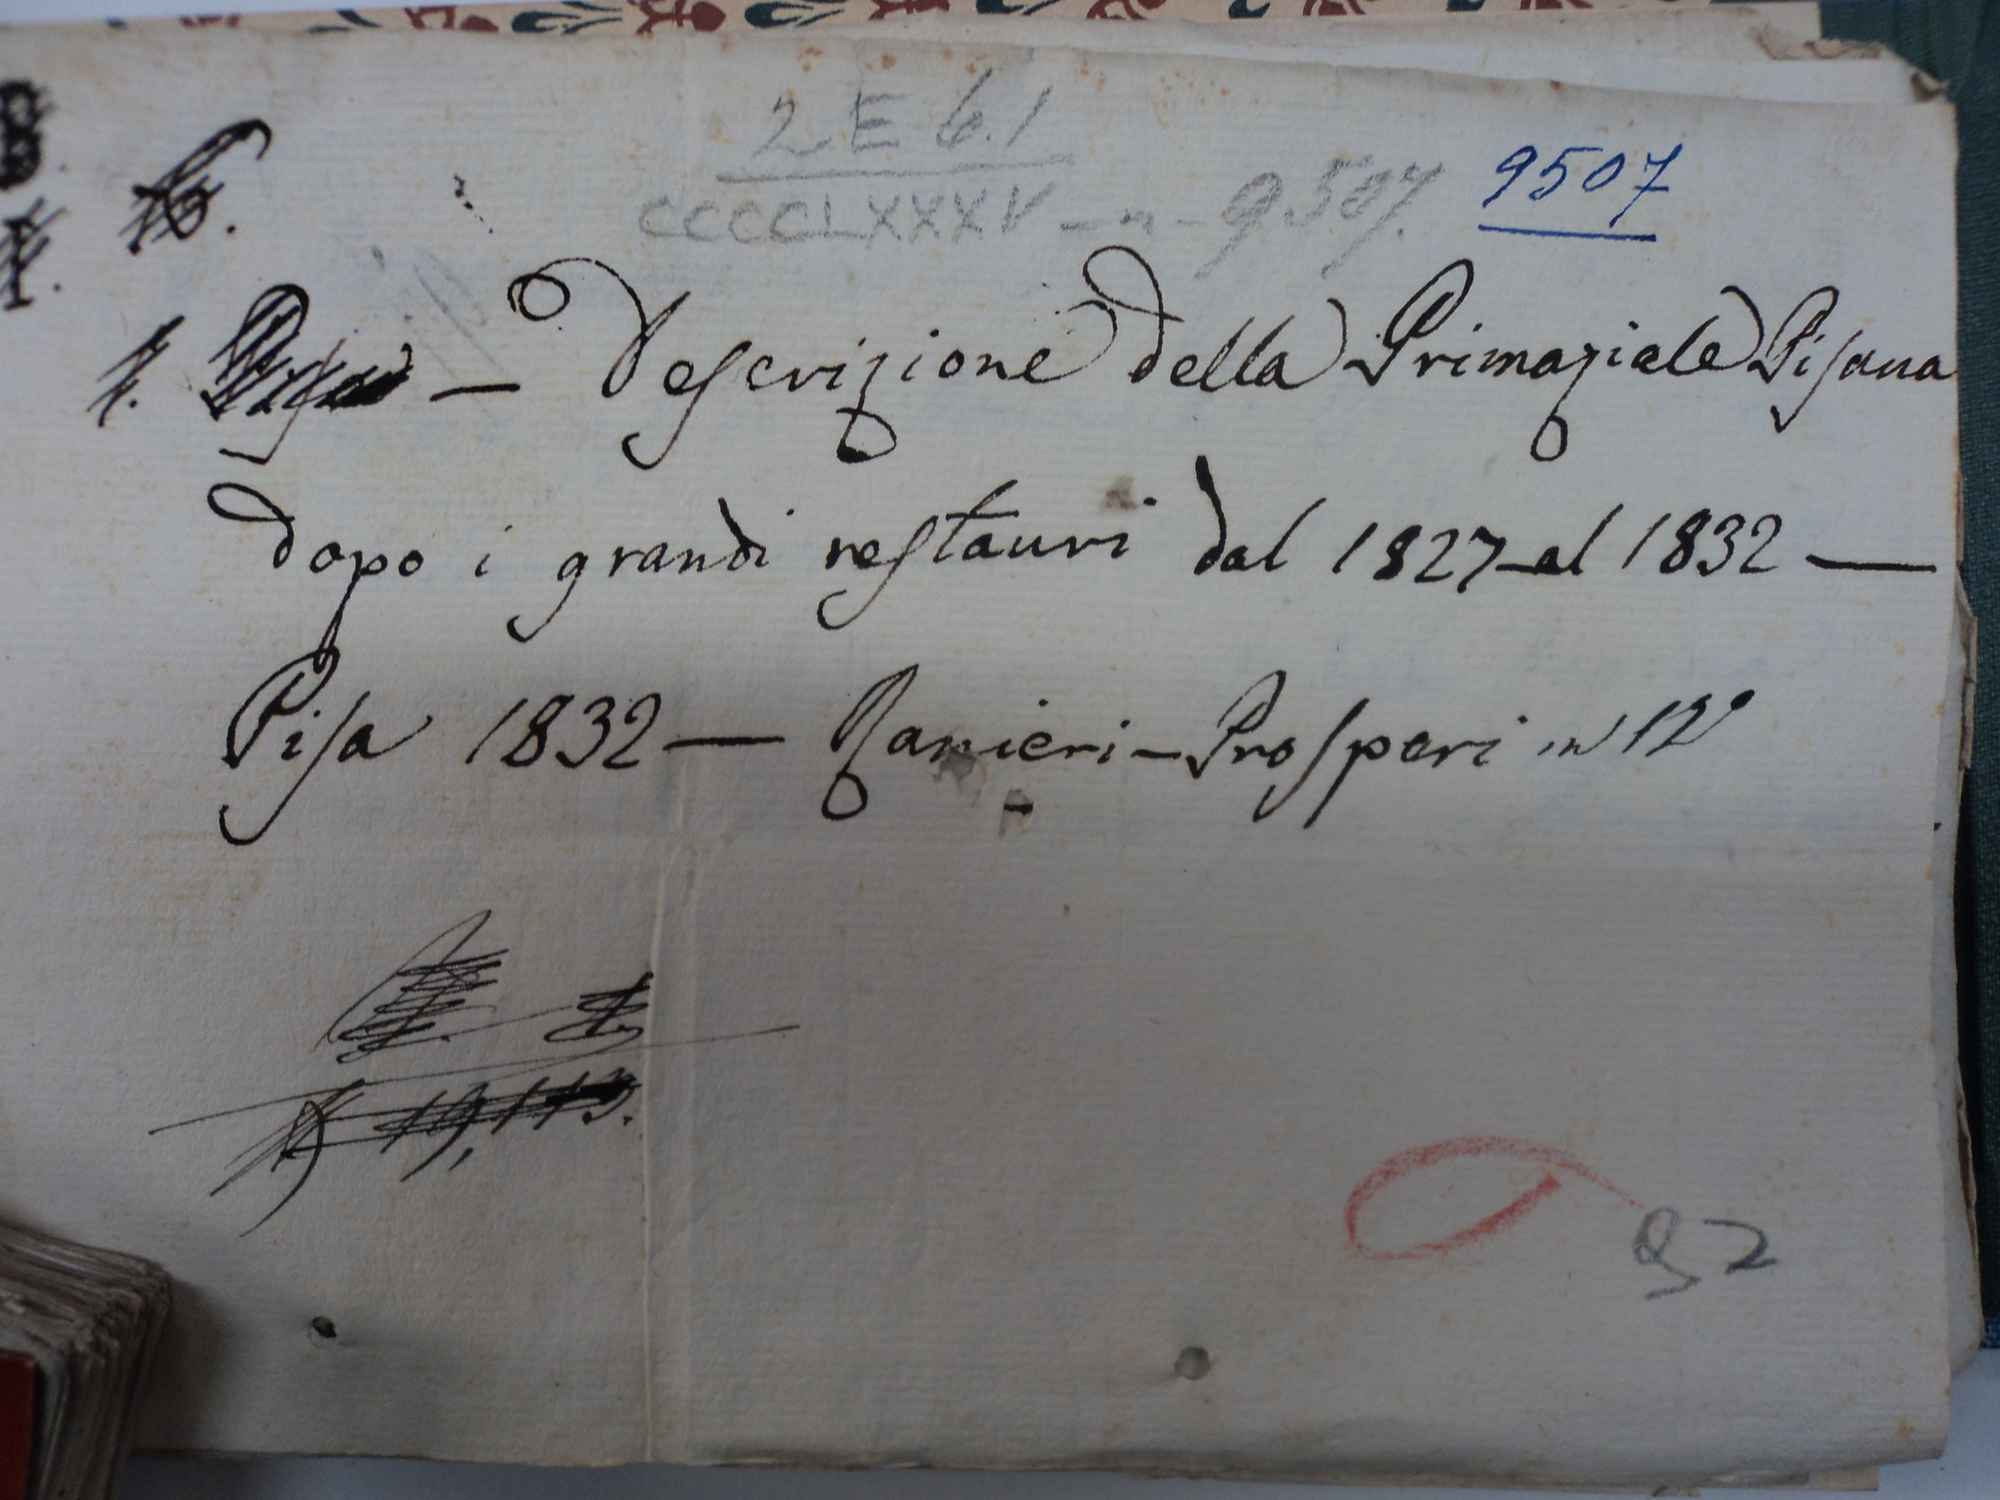 2 E 6.1
CCCCLXXXV - n - 9507. 9507
1. — Descrizione della Primaziale Pisana
dopo i grandi restauri dal 1827 al 1832 —
Pisa 1832 — Ranieri-Prosperi in 12°
19,113.
92